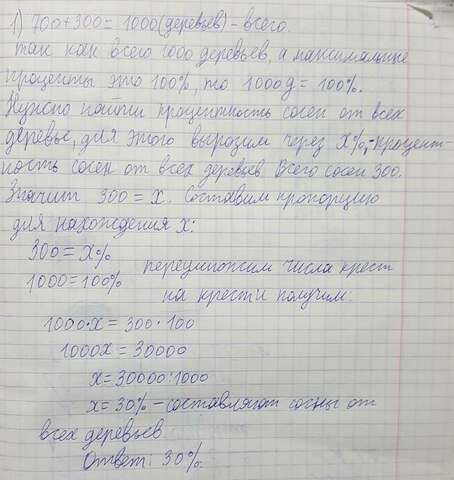 1) 700+300= 1000(деревьев)-всего.
так как всего 1000 деревьев, а максимальные
проценты это 100%, то 1000д=100%.
Нужно найти процентность сосен от всех
деревье, для этого вырозим через X%,-процент-
ность сосен от всех деревьев Всего сосен 300.
Значит 300=x. Составим пропорцию
для нахождения x:
300=X%
1000=100%
перемножим числа крест
на крест и получим:
1000·x=300·100
1000x=30000
x=30000:1000
x=30%-составляют сосны от
всех деревьев
Ответ: 30%.